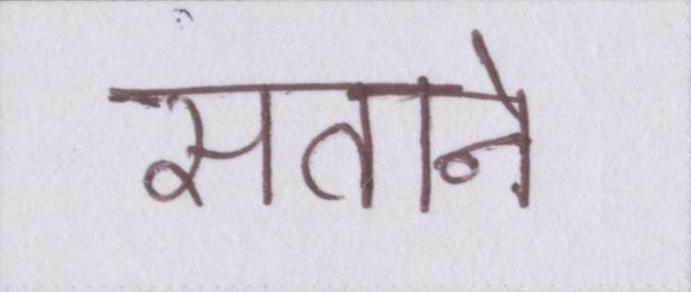 सताने